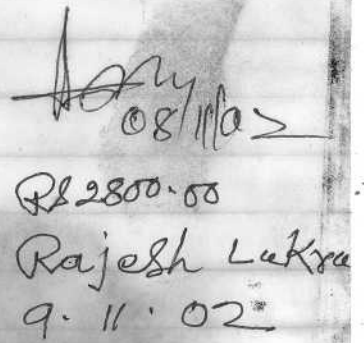 08/11/02
RS 2800.00
Rajesh Lakra
9.11.02